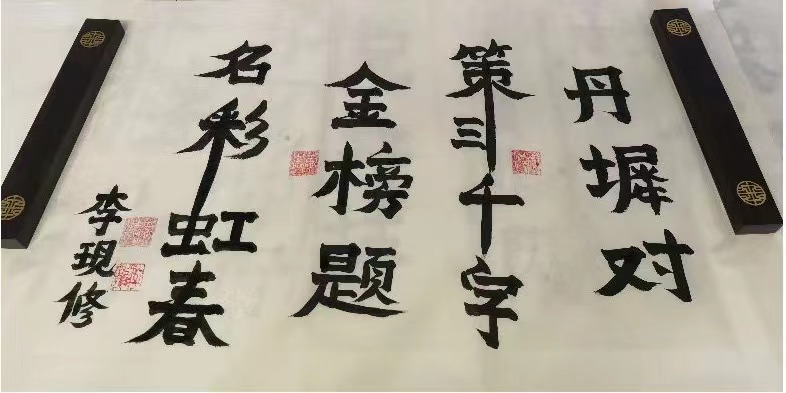 丹墀对
策三千字
金榜题
名彩虹春
李現修